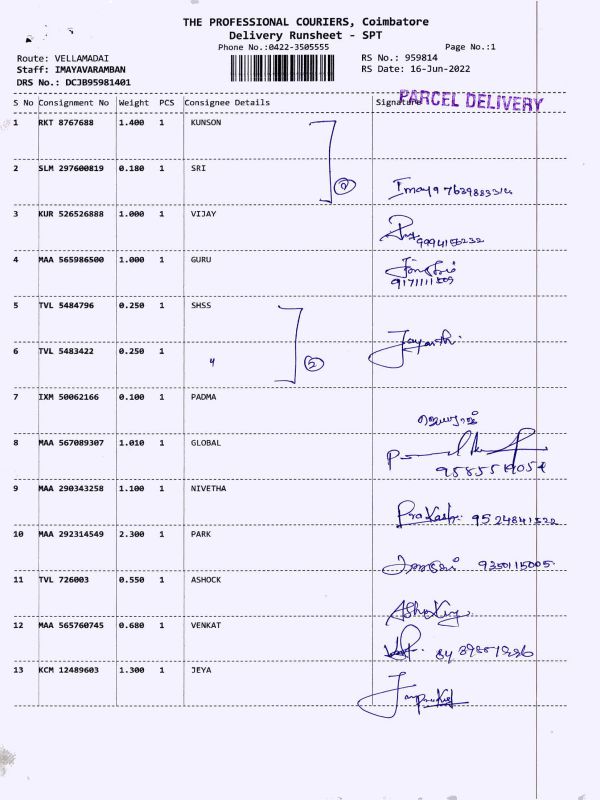 THE PROFESSIONAL COURIERS, Coimbatore
Delivery Runsheet - SPT
Phone No.:0422-3505555 Page No.:1
Route: VELLAMADAI RS No.: 959814
Staff: IMAYAVARAMBAN RS Date: 16-Jun-2022
DRS No.: DCJB95981401
S No Consignment No Weight PCS Consignee Details Signature
PARCEL DELIVERY
1 RKT 8767688 1.400 1 KUNSON
2 SLM 297600819 0.180 1 SRI
2
3 KUR 526526888 1.000 1 VIJAY
4 MAA 565986500 1.000 1 GURU
5 TVL 5484796 0.250 1 SHSS
6 TVL 5483422 0.250 1 " 2 Jayanthi.
7 IXM 50062166 0.100 1 PADMA
8 MAA 567089307 1.010 1 GLOBAL
9 MAA 290343258 1.100 1 NIVETHA
Prakash.
10 MAA 292314549 2.300 1 PARK
9350115005.
11 TVL 726003 0.550 1 ASHOCK
12 MAA 565760745 0.680 1 VENKAT
13 KCM 12489603 1.300 1 JEYA